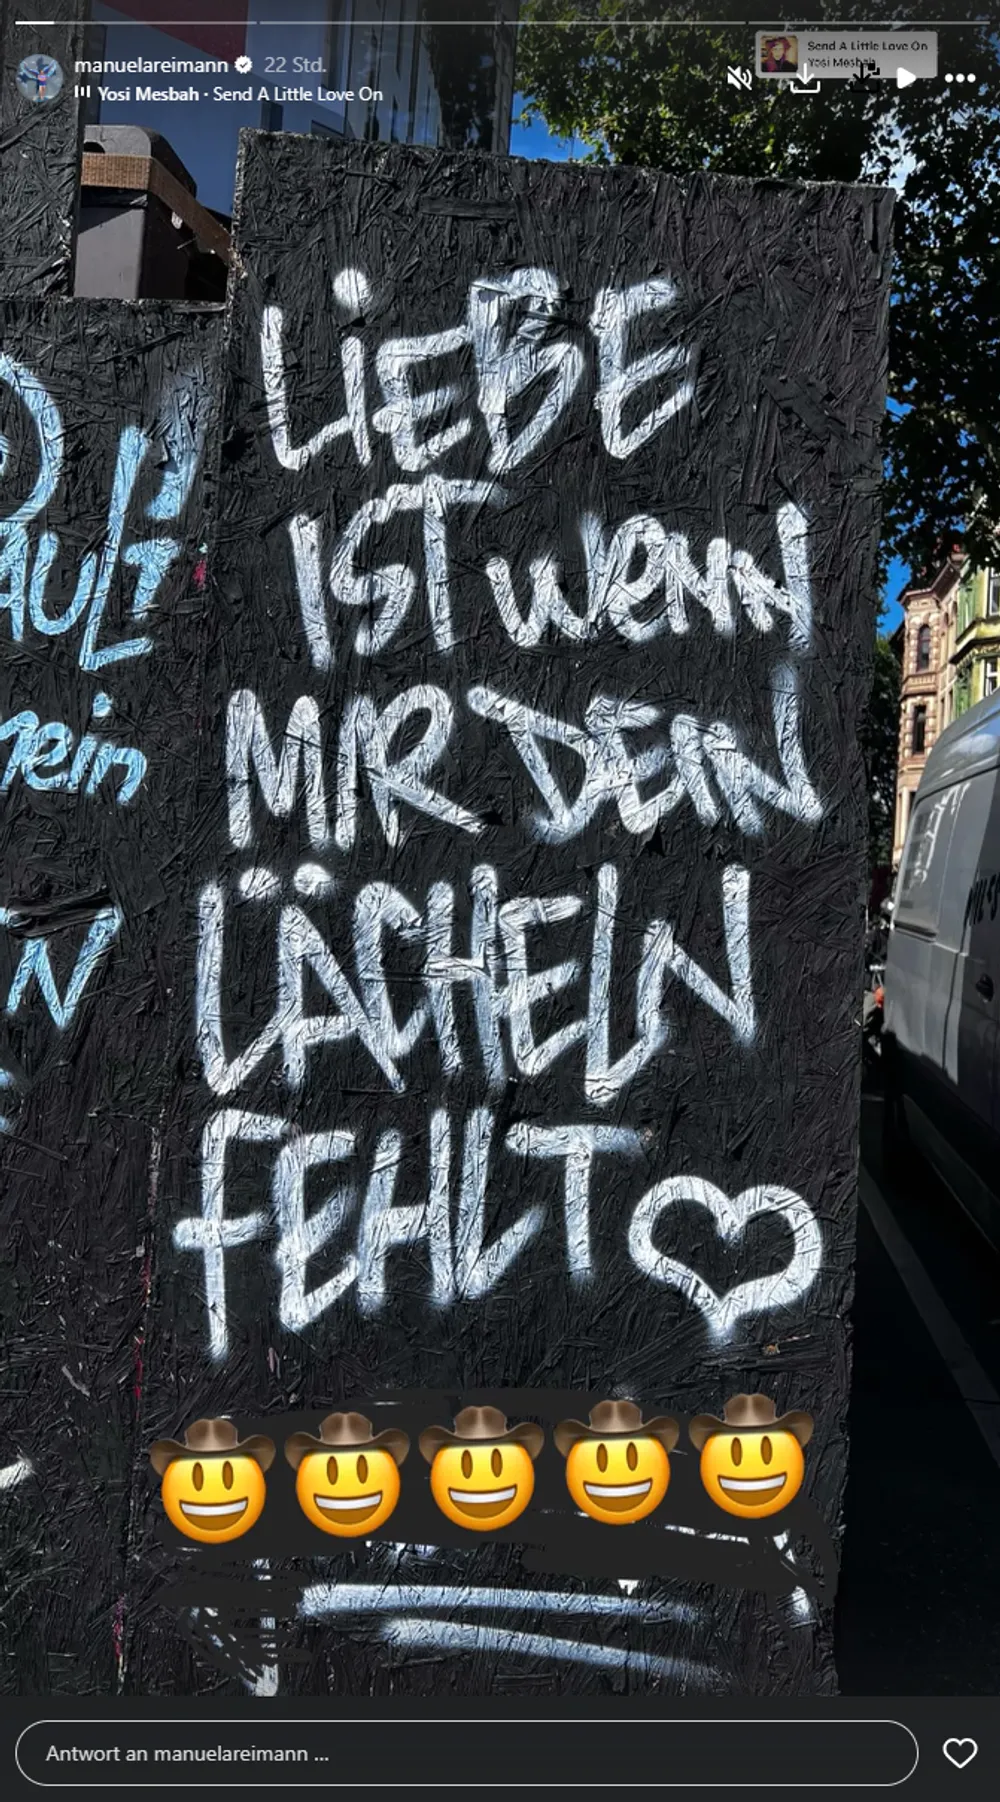 manuelareimann 22 Std.
Yosi Mesbah · Send A Little Love On
Send A Little Love On
Yosi Mesbah
LiEBE
IST wenn
MIR DEIN
LÄCHELN
FEHLT
AULT
mein
N
Antwort an manuelareimann ...